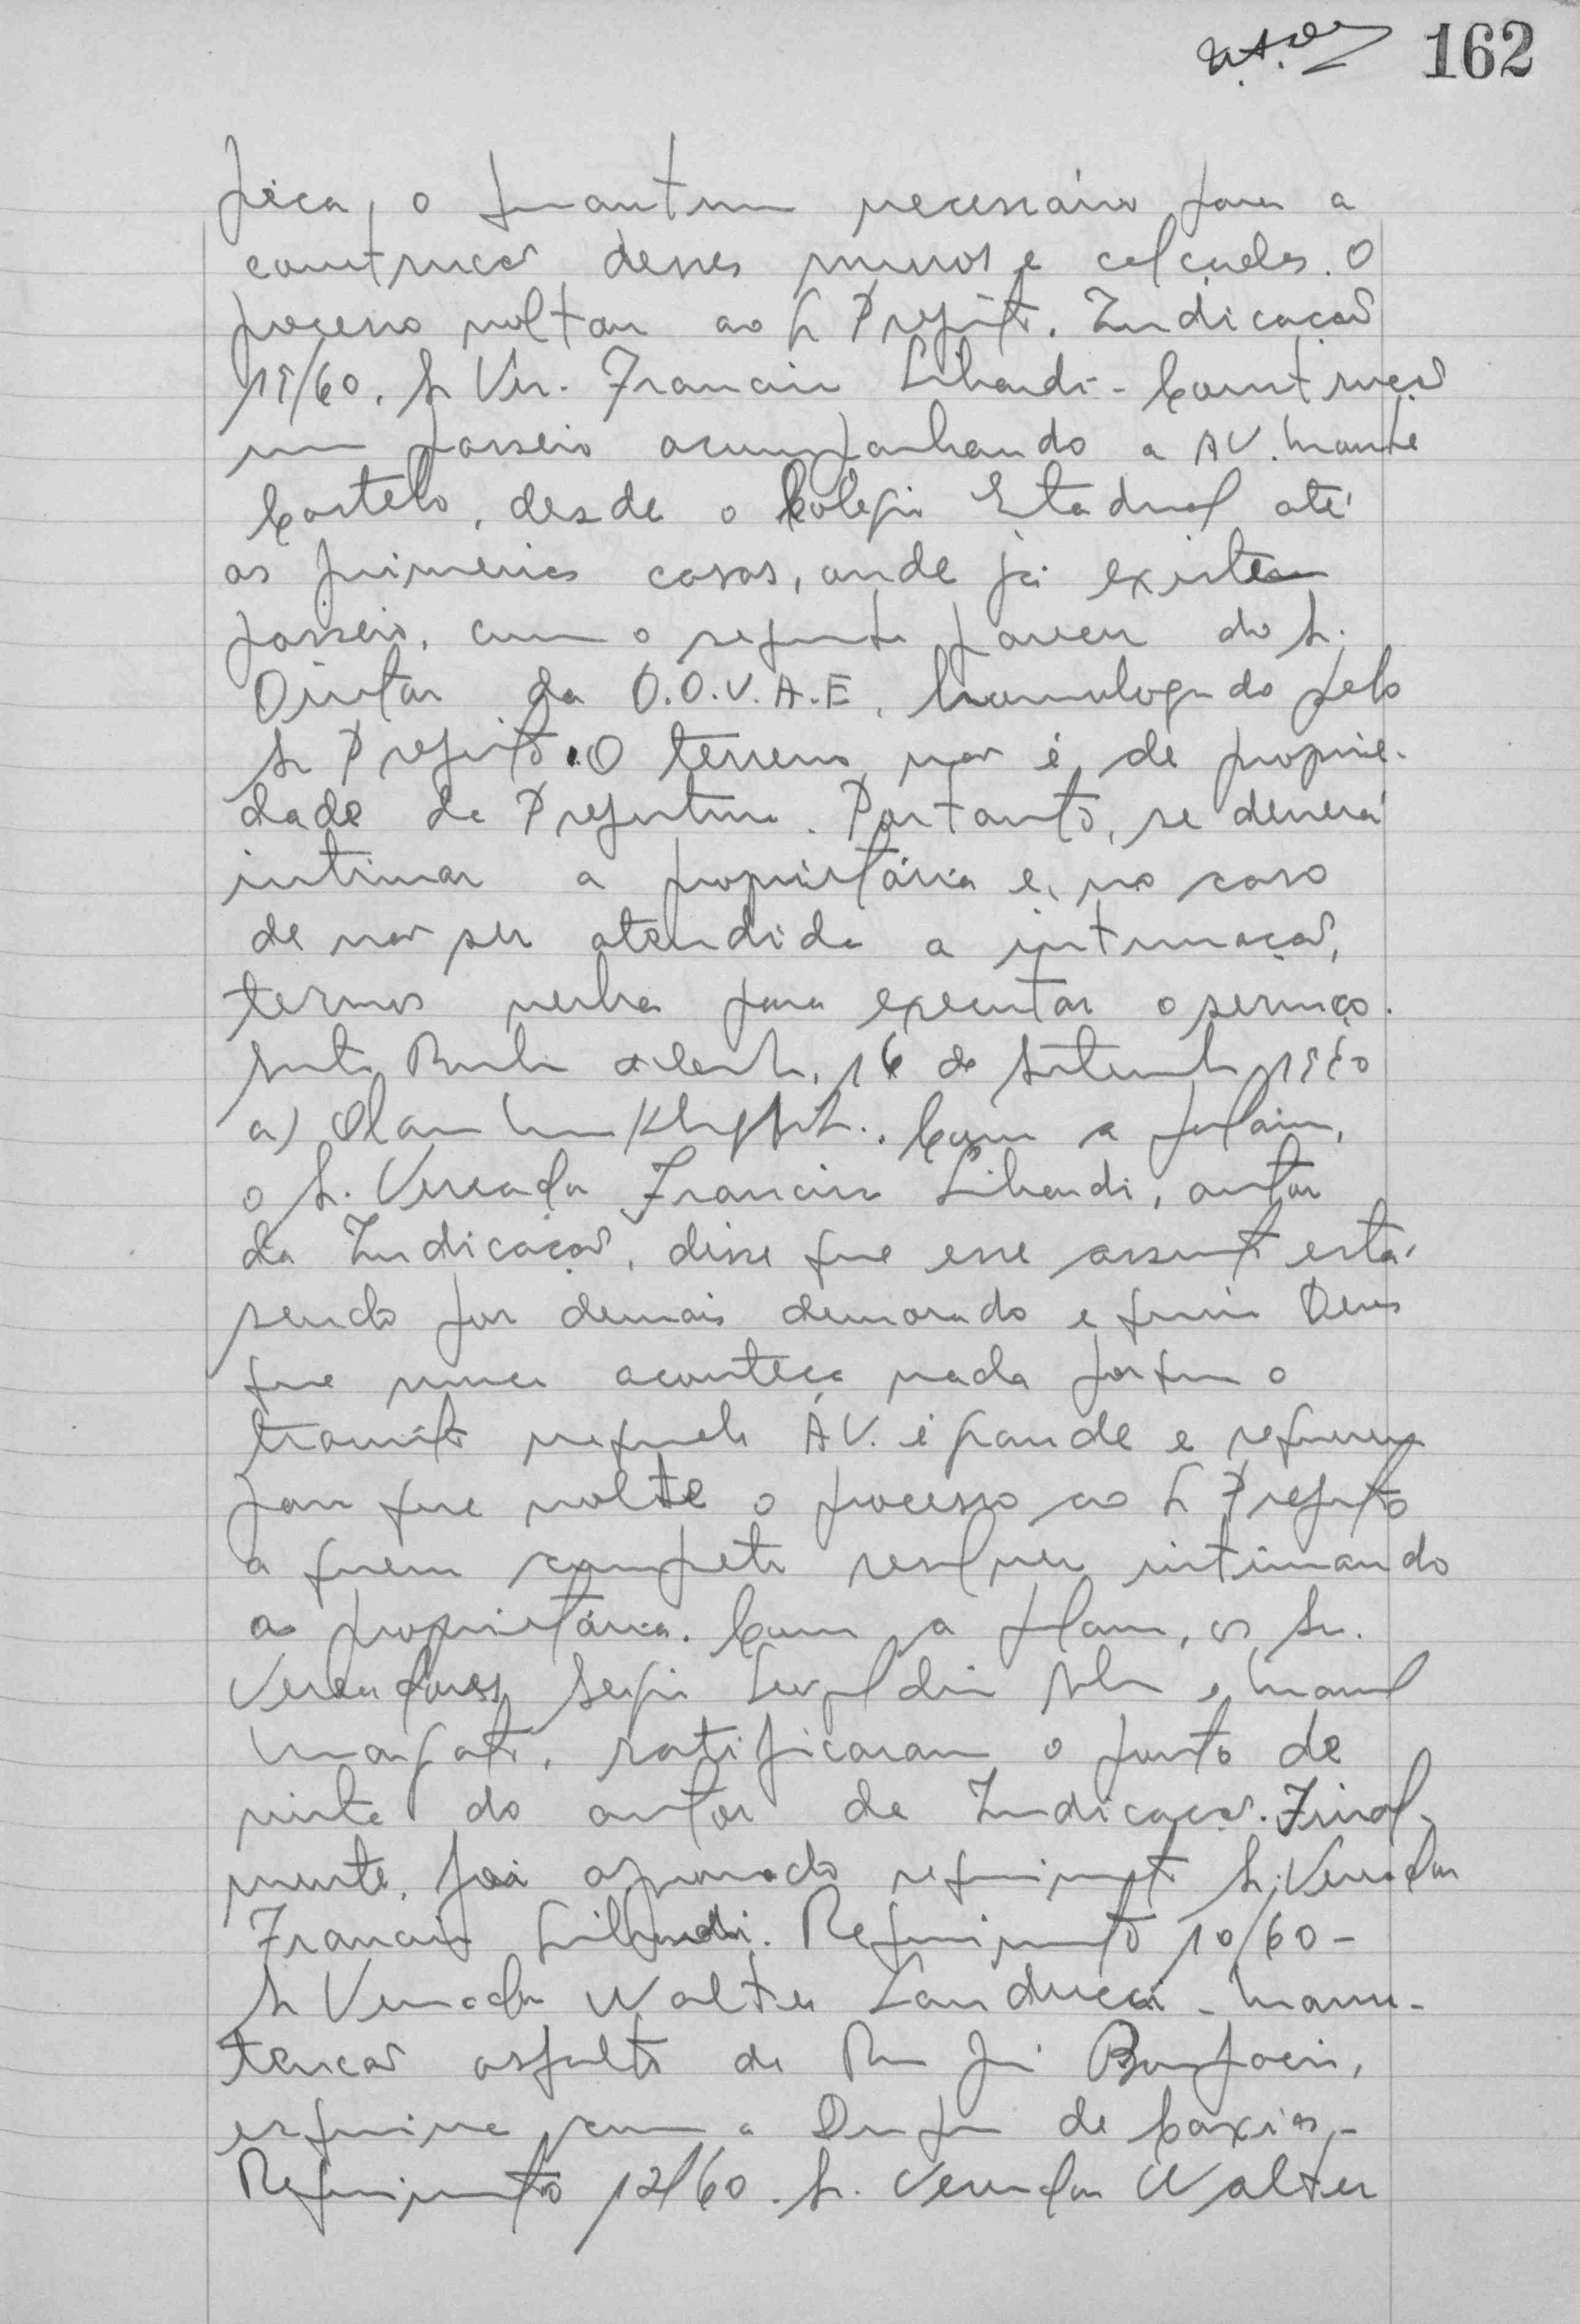 162
fica, o quantum necessário para a
construção desses muros e calçadas. O
processo voltou ao Sr Prefeito. Indicação
19/60. Sr Ver. Francisco Libardi - Construção
um passeio acompanhando a AV. Monte
Castelo, desde o Colégio Estadual até
as primeiras casas, onde já existem
passeio, com o seguinte parecer do Sr.
Diretor da D.O.V.A.E, homologado pelo
Sr Prefeito. O terreno não é de proprie-
dade da Prefeitura. Portanto, se deverá
intimar a proprietária e, no caso
de não ser atendida a intimação,
temos verba para executar o serviço.
16 de Setembro 1960
a) Com a palavra,
o Sr. Vereador Francisco Libardi, autor
da Indicação, disse que esse assunto está
sendo por demais demorado e queira Deus
que nunca aconteça nada porque o
transito naquela AV. é grande e requereu
para que volte o processo ao Sr Prefeito
a quem compete resolver intimando
a proprietária. Com a palavra, os Srs.
Vereadores Sergio Leopoldino Alves e Manoel
ratificaram o ponto de
vista do autor da Indicação. Final-
mente, foi aprovado requerimento Sr. Vereador
Francisco Libardi. Requerimento 10/60 -
Sr Vereador Walter Landucci - Manu-
tenção asfalto da Rua José Bonifácio,
esquina com a Duque de Caxias -
Requerimento 12/60. Sr. Vereador Walter